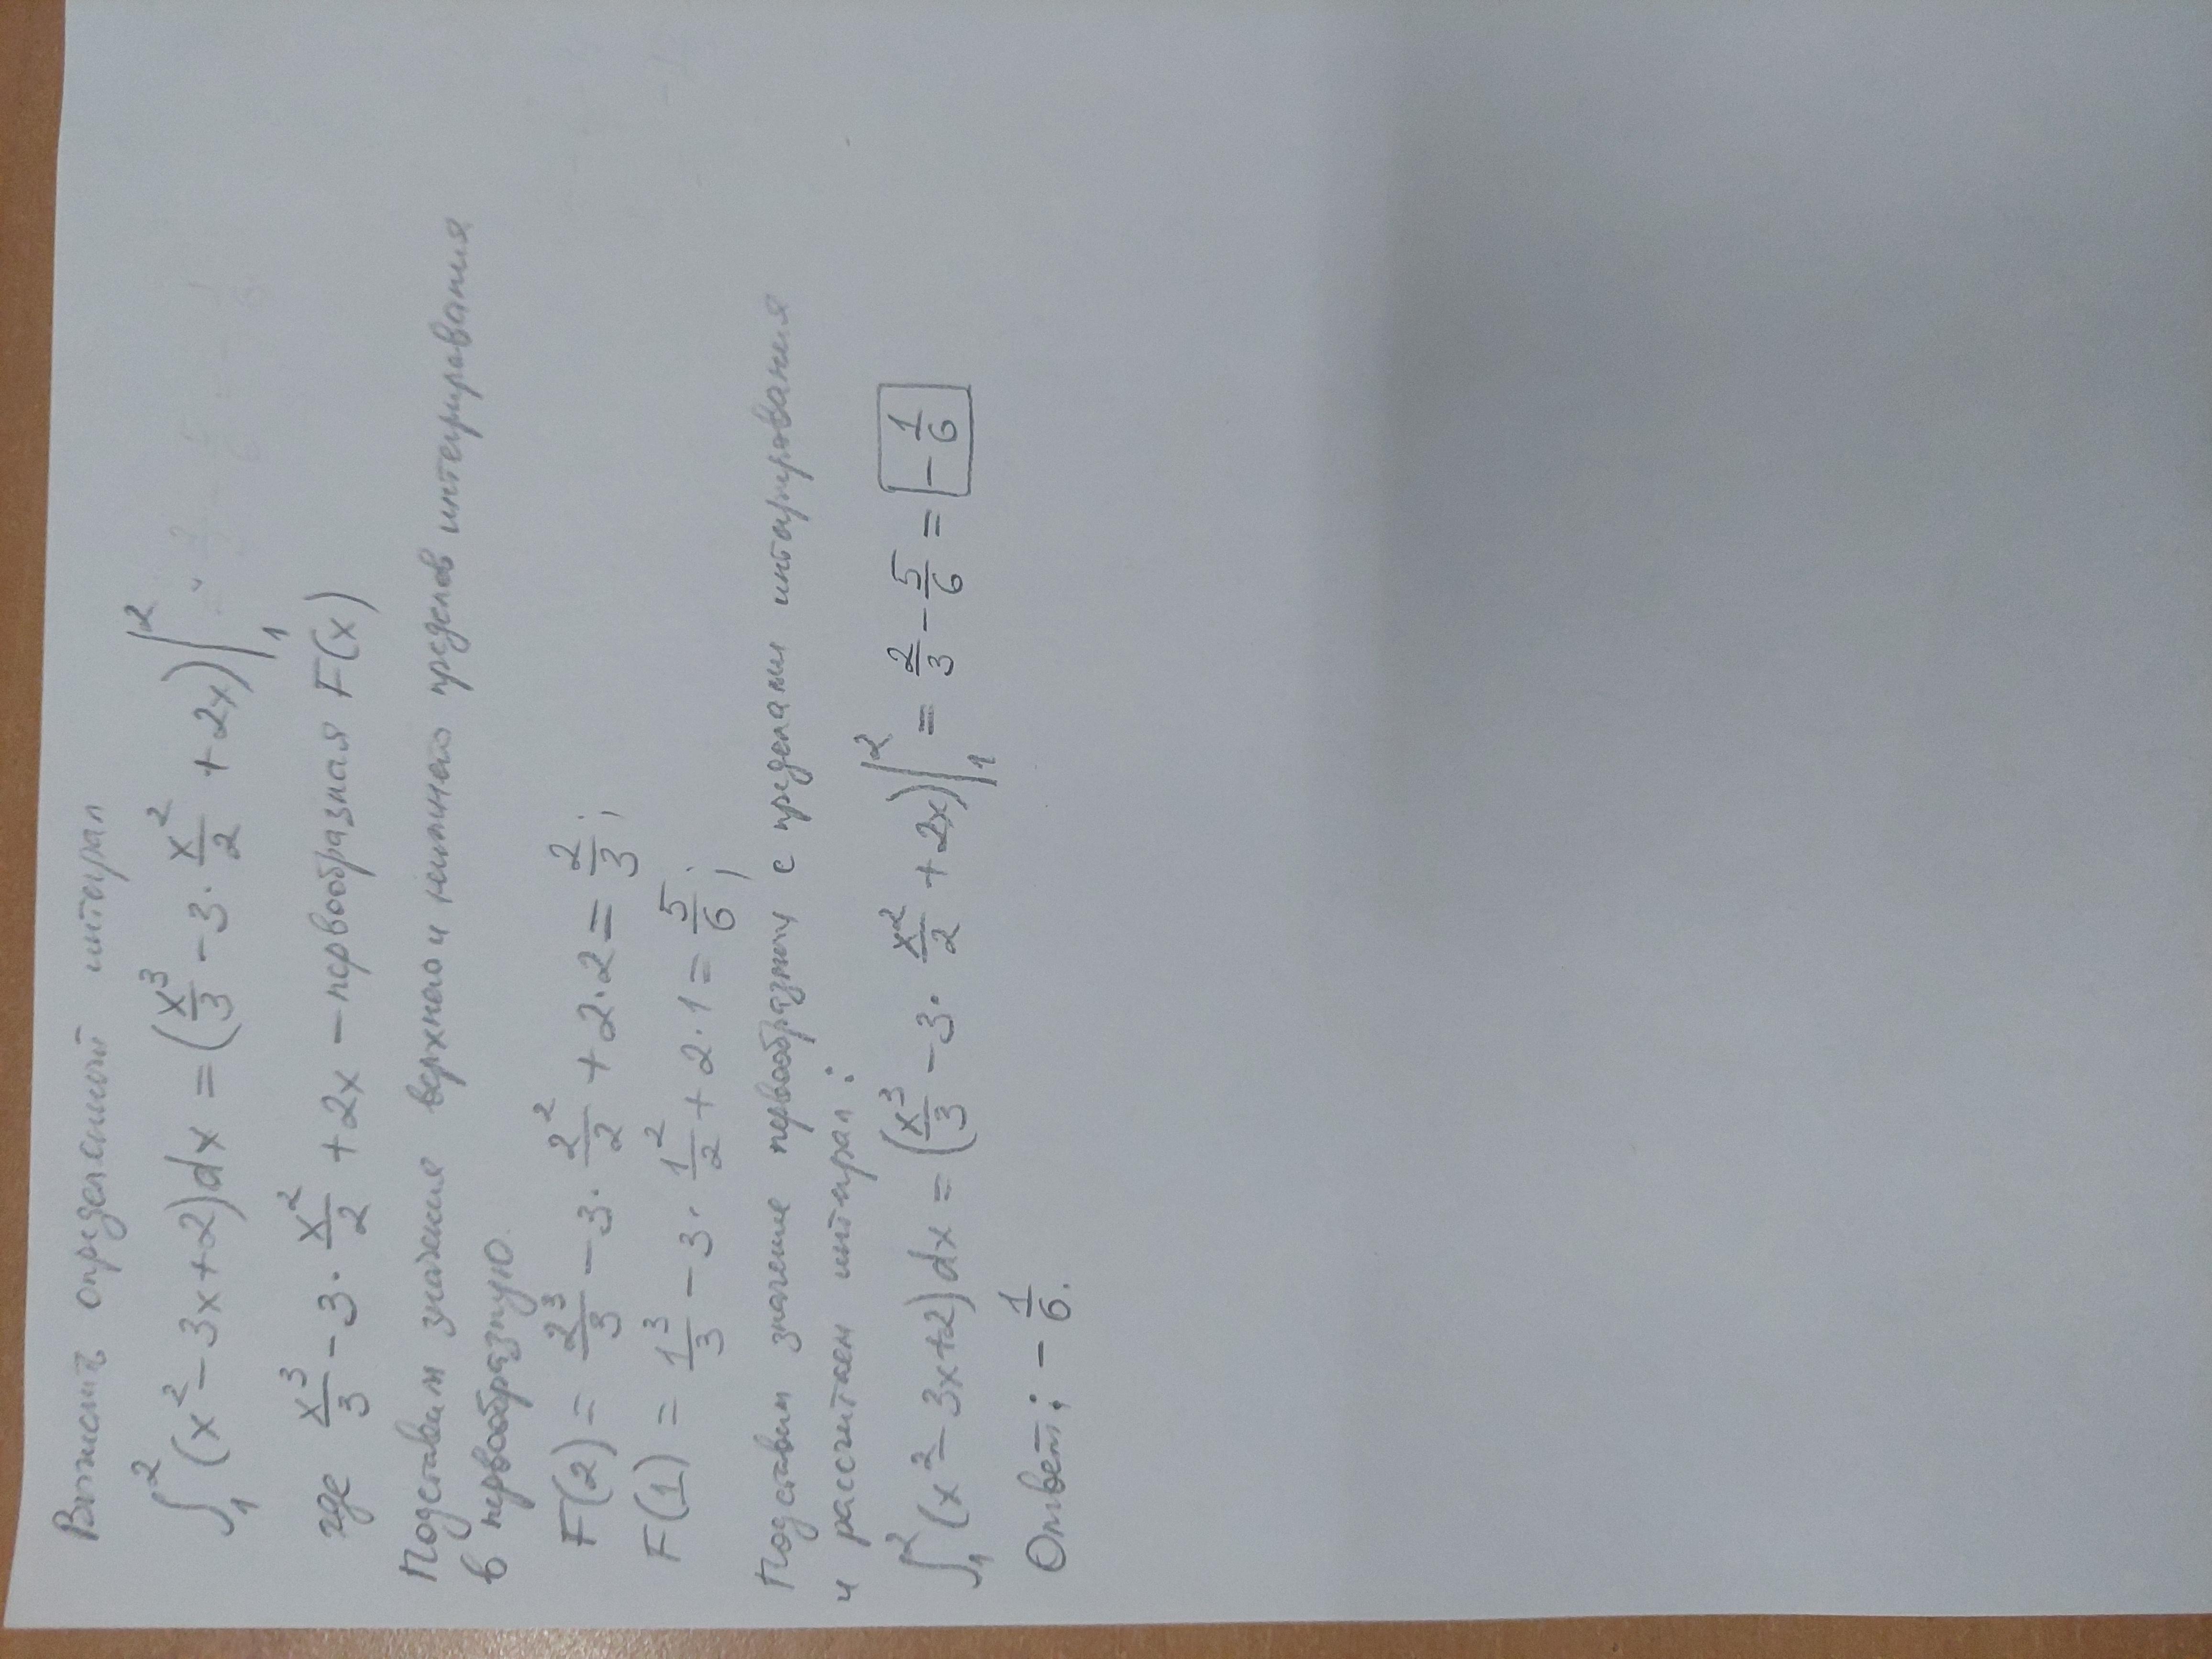 Вычислить определенный интеграл
∫₁² (x² - 3x + 2)dx = (x³/3 - 3 · x²/2 + 2x)|₁²
где x³/3 - 3 · x²/2 + 2x - первообразная F(x)
Подставим значения верхнего и нижнего пределов интегрирования
в первообразную.
F(2) = 2³/3 - 3 · 2²/2 + 2 · 2 = 2/3;
F(1) = 1³/3 - 3 · 1²/2 + 2 · 1 = 5/6;
Подставим значение первообразных с пределами интегрирования
и рассчитаем интеграл:
∫₁² (x² - 3x + 2)dx = (x³/3 - 3 · x²/2 + 2x)|₁² = 2/3 - 5/6 = -1/6
Ответ: -1/6.